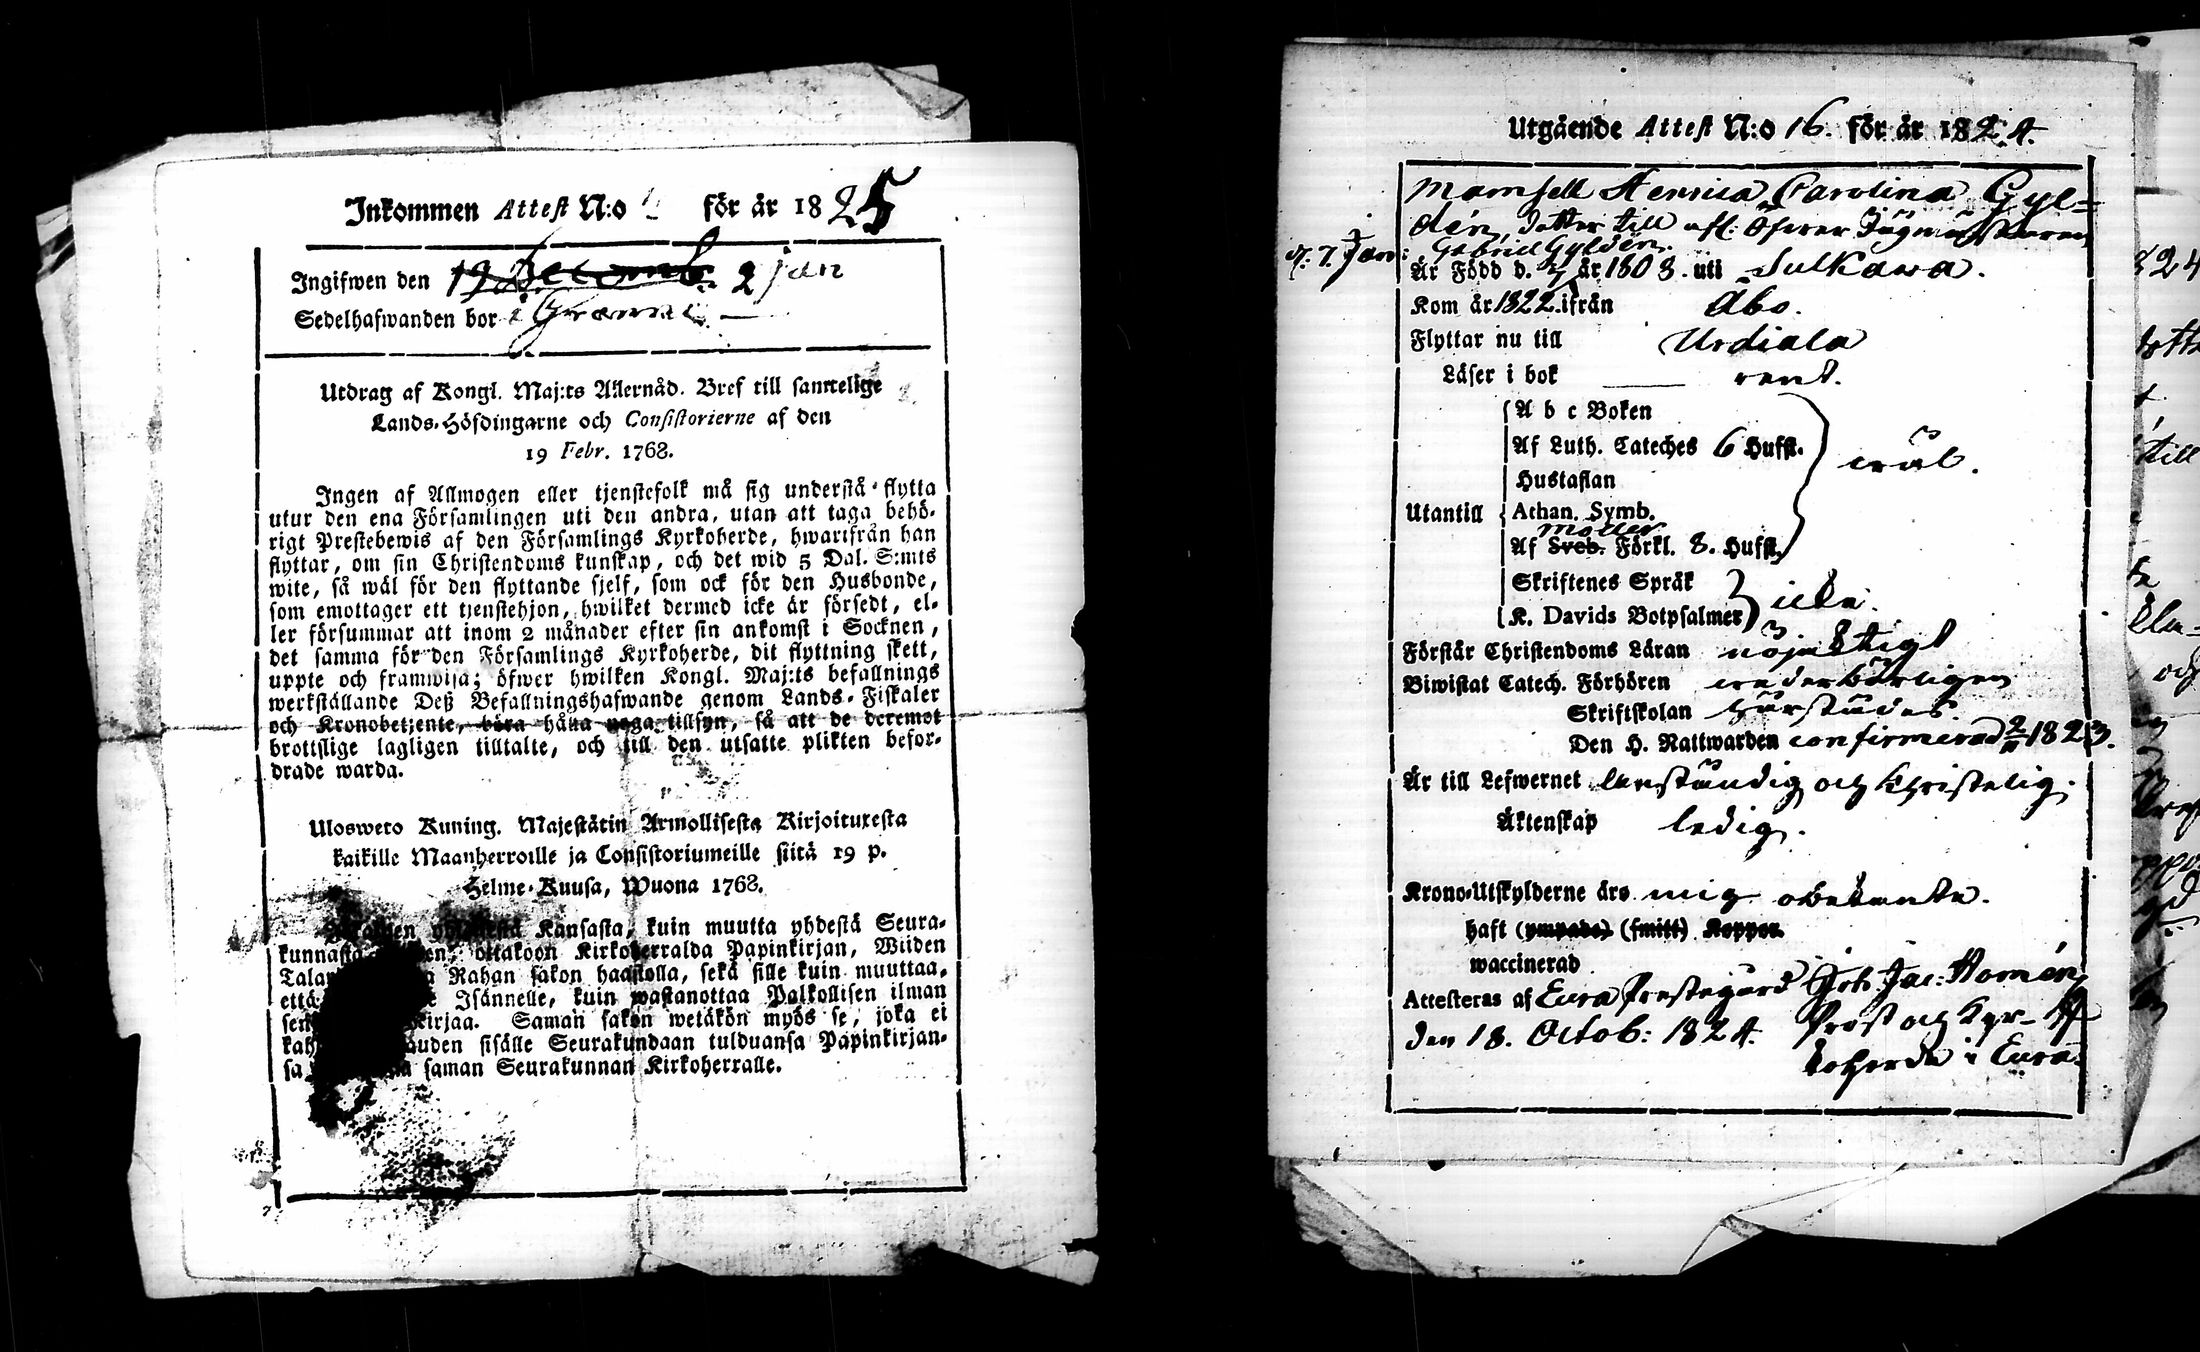 Inkommen Attest N:o för år 1825
Ingifwen den 19 Decemb. 2 jan
Sedelhafwanden bor i
Utdrag af Kongl. Maj:ts Allernåd. Bref till samtelige
Lands-Höfdingarne och Consistorierne af den
19 Febr. 1768.
Ingen af Allmogen eller tjenstefolk må sig understå flytta
utur den ena Församlingen uti den andra, utan att taga behö-
rigt Prestebewis af den Församlings Kyrkoherde, hwarifrån han
flyttar, om sin Christendoms kunskap, och det wid 5 Dal. S:mts
wite, så wäl för den flyttande sjelf, som ock för den Husbonde,
som emottager ett tjenstehjon, hwilket dermed icke är försedt, el-
ler försummar att inom 2 månader efter sin ankomst i Socknen,
det samma för den Församlings Kyrkoherde, dit flyttning skett,
uppte och framwisa; öfwer hwilken Kongl. Maj:ts befallnings
werkställande Deß Befallningshafwande genom Lands-Fiskaler
och Kronobetjente, böra hålla noga tillsyn, så att de deremot
brottslige lagligen tilltalte, och till den utsatte plikten befor-
drade warda.
Ulosweto Kuning. Majestätin Armollisesta Kirjoituxesta
kaikille Maanherroille ja Consistoriumeille siitä 19 p.
Helme-Kuusa, Wuona 1768.
Kansasta, kuin muutta yhdestä Seura-
kunnasta ottakoon Kirkoherralda Papinkirjan, Wiiden
Rahan sakon haastolla, sekä sille kuin muuttaa,
että Isännelle, kuin wastanottaa Palkollisen ilman
kirjaa. Saman sakon wetäkön myös se, joka ei
sisälle Seurakundaan tulduansa Papinkirjan-
sa saman Seurakunnan Kirkoherralle.
Utgående Attest N:o 16. för år 1824.
Mamsell Henrica Carolina Gyl=
dén, dotter till afl: Öfwer Jägmästaren
Gabriel Gyldén.
d. 7. Jan:
Är Född d. 7/1 år 1808. uti Sulkawa.
Kom år 1822. ifrån Åbo.
Flyttar nu till Urdiala
Läser i bok rent.
A b c Boken
Af Luth. Cateches 6 Hufst.
Hustaflan
wäl.
Utantill
Athan. Symb.
Möller
Af Sveb. Förkl. 8. Hufst.
Skriftenes Språk
K. Davids Botpsalmer
icke.
Förstår Christendoms Läran nöjaktigt
Biwistat Catech. Förhören wederbörligen
Skriftskolan härstädes.
Den H. Nattwarden confirmerad 2/11 1823.
Är till Lefwernet anständig och Christelig.
Äktenskap ledig.
Krono-Utskylderne äro mig obekante.
haft (ympade) (smitt) Koppor.
waccinerad
Attesteras af Eura Prestegård Joh. Jac: Homén
den 18. Octob: 1824. Prost och Kyr-
koherde i Eura.